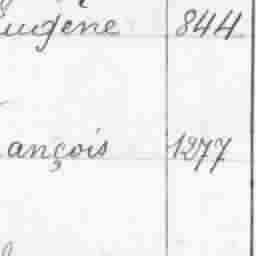 ugène 844
ançois 1277